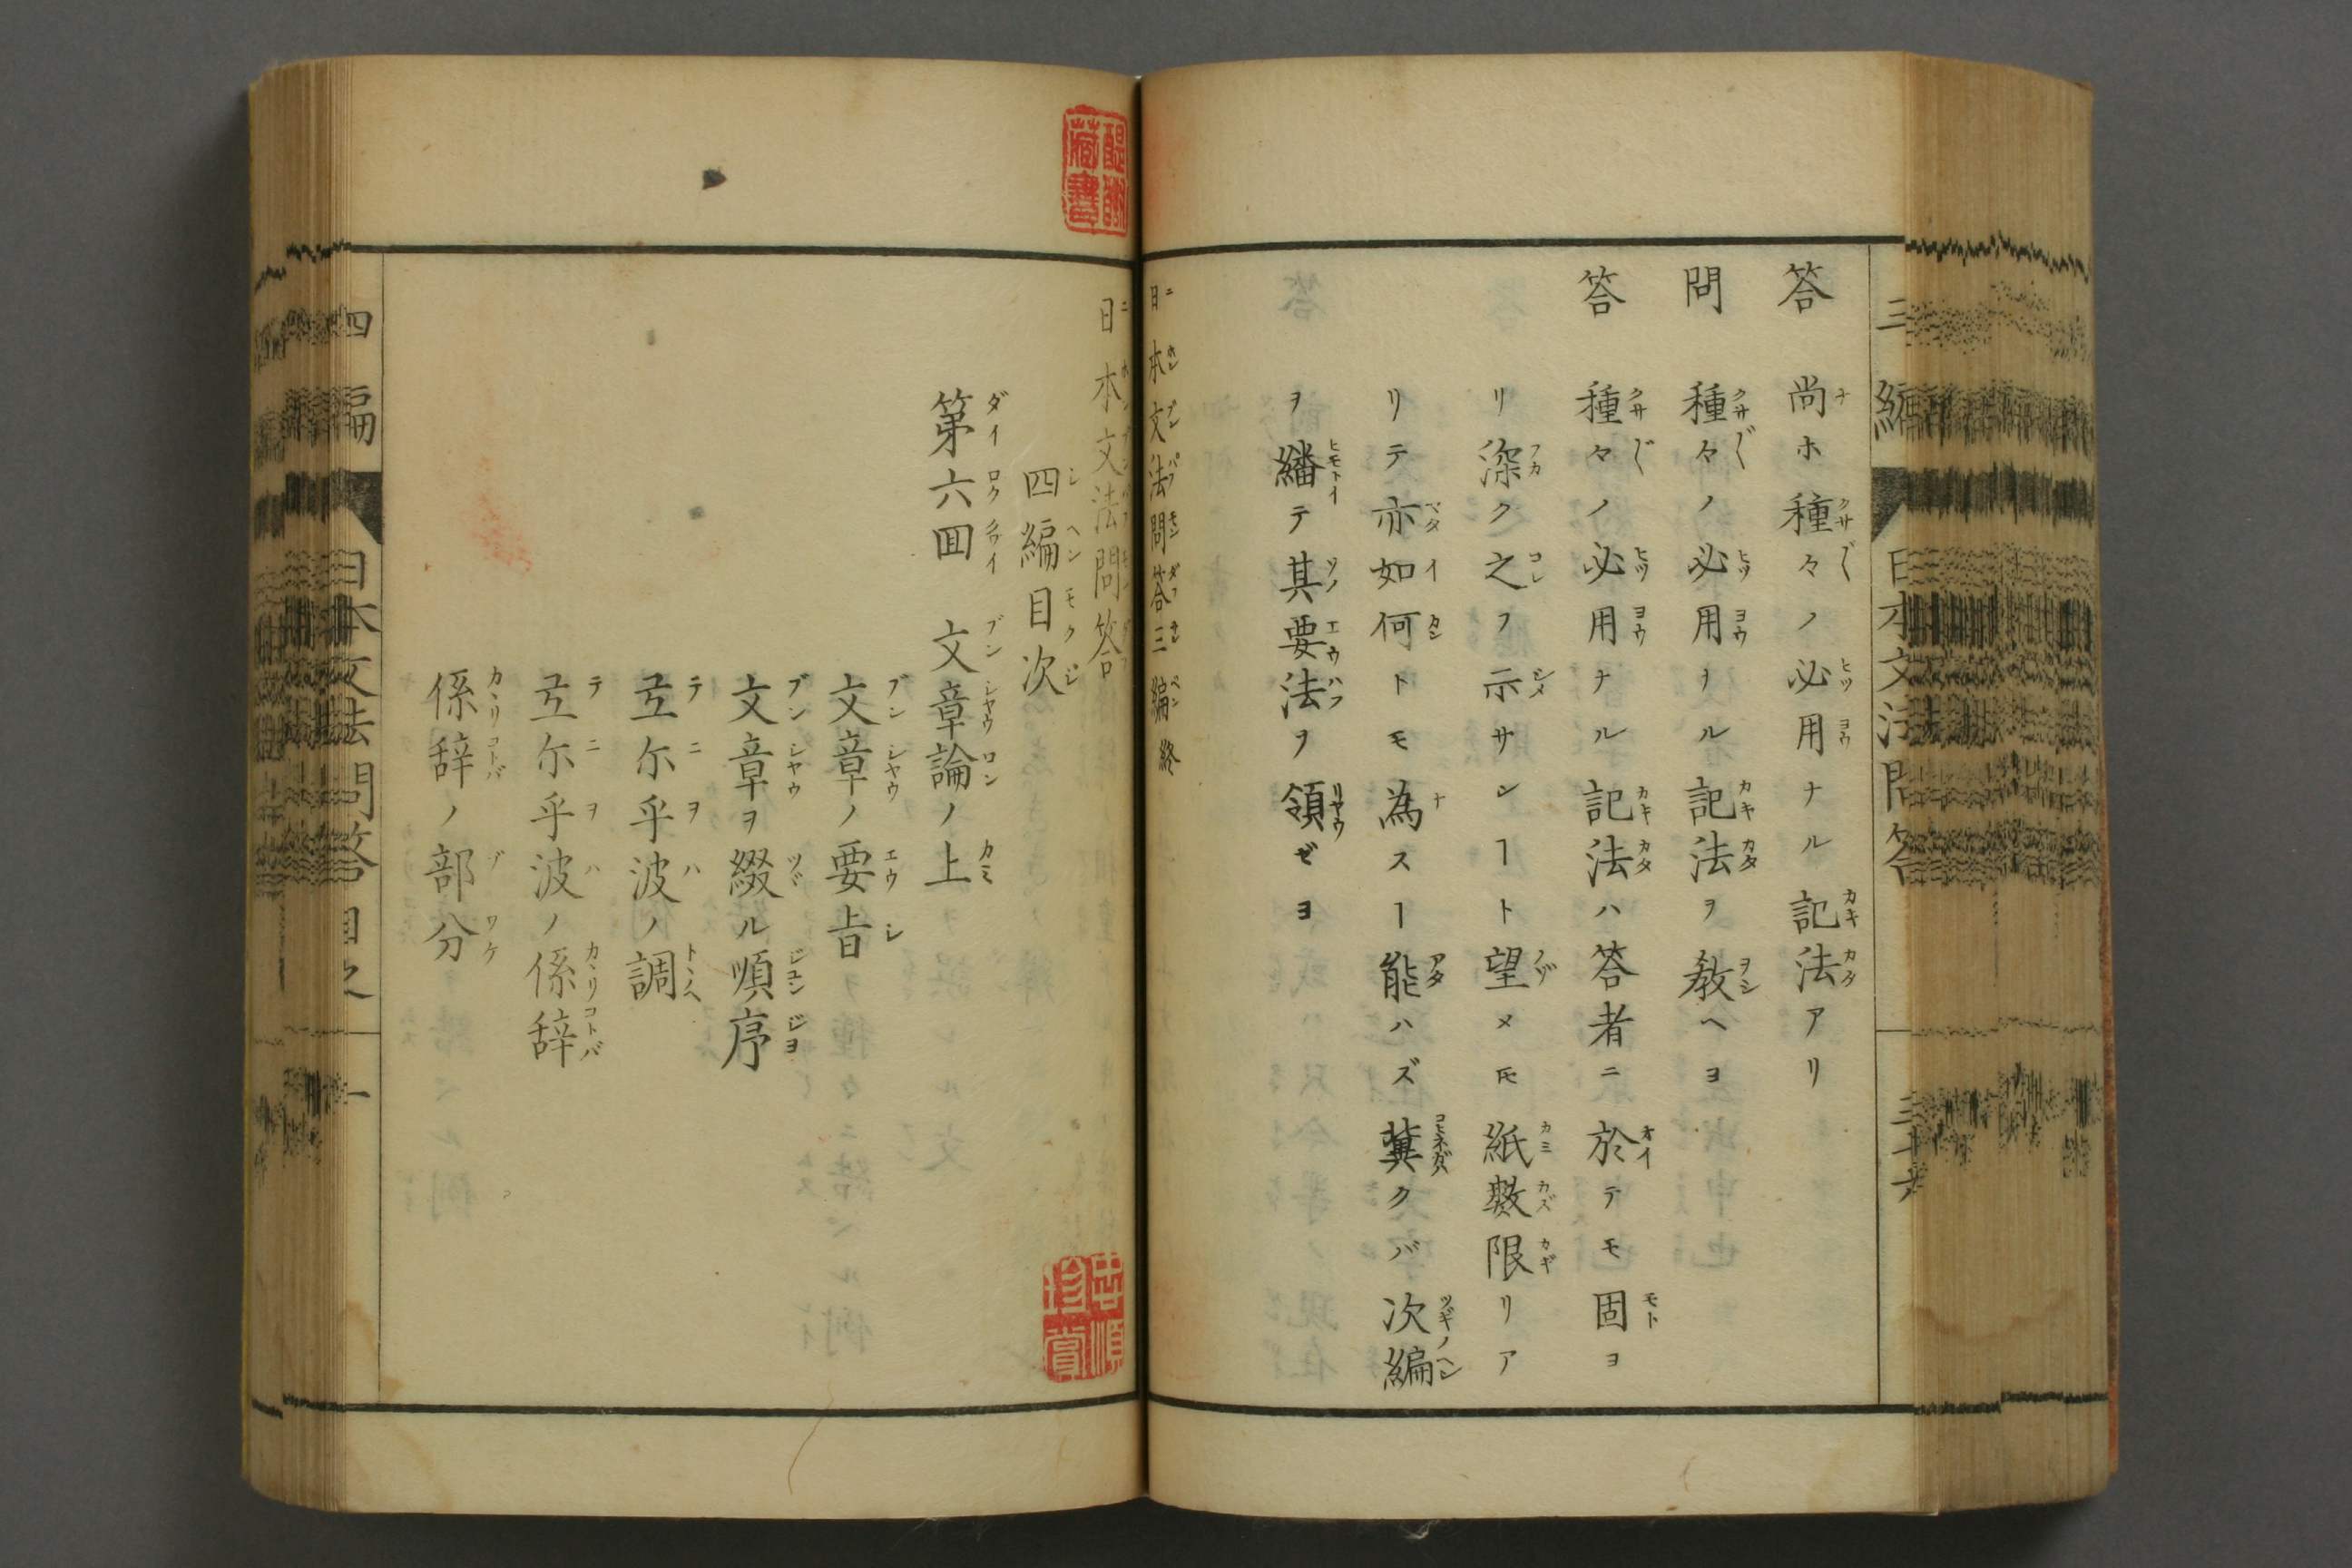 答 尚ホ種々ノ必用ナル記法アリ
問 種々ノ必用ナル記法ヲ教ヘヨ
答 種々ノ必用ナル記法ハ答者ニ於テモ固ヨ
リ深ク之ヲ示サンヿト望メ𪜈紙数限リア
リテ亦如何トモ為スヿ能ハズ冀クバ次編
ヲ繙テ其要法ヲ領ゼヨ
日本文法問答三編終
日本文法問答
四編目次
第六回 文章論ノ上
文章ノ要旨
文章ヲ綴ル順序
弖尓乎波ノ調
弖尓乎波ノ係辞
係辞ノ部分
三編 日本文法問答
四編 日本文法問答 目之 一
醍醐蔵書
忠順珍賞